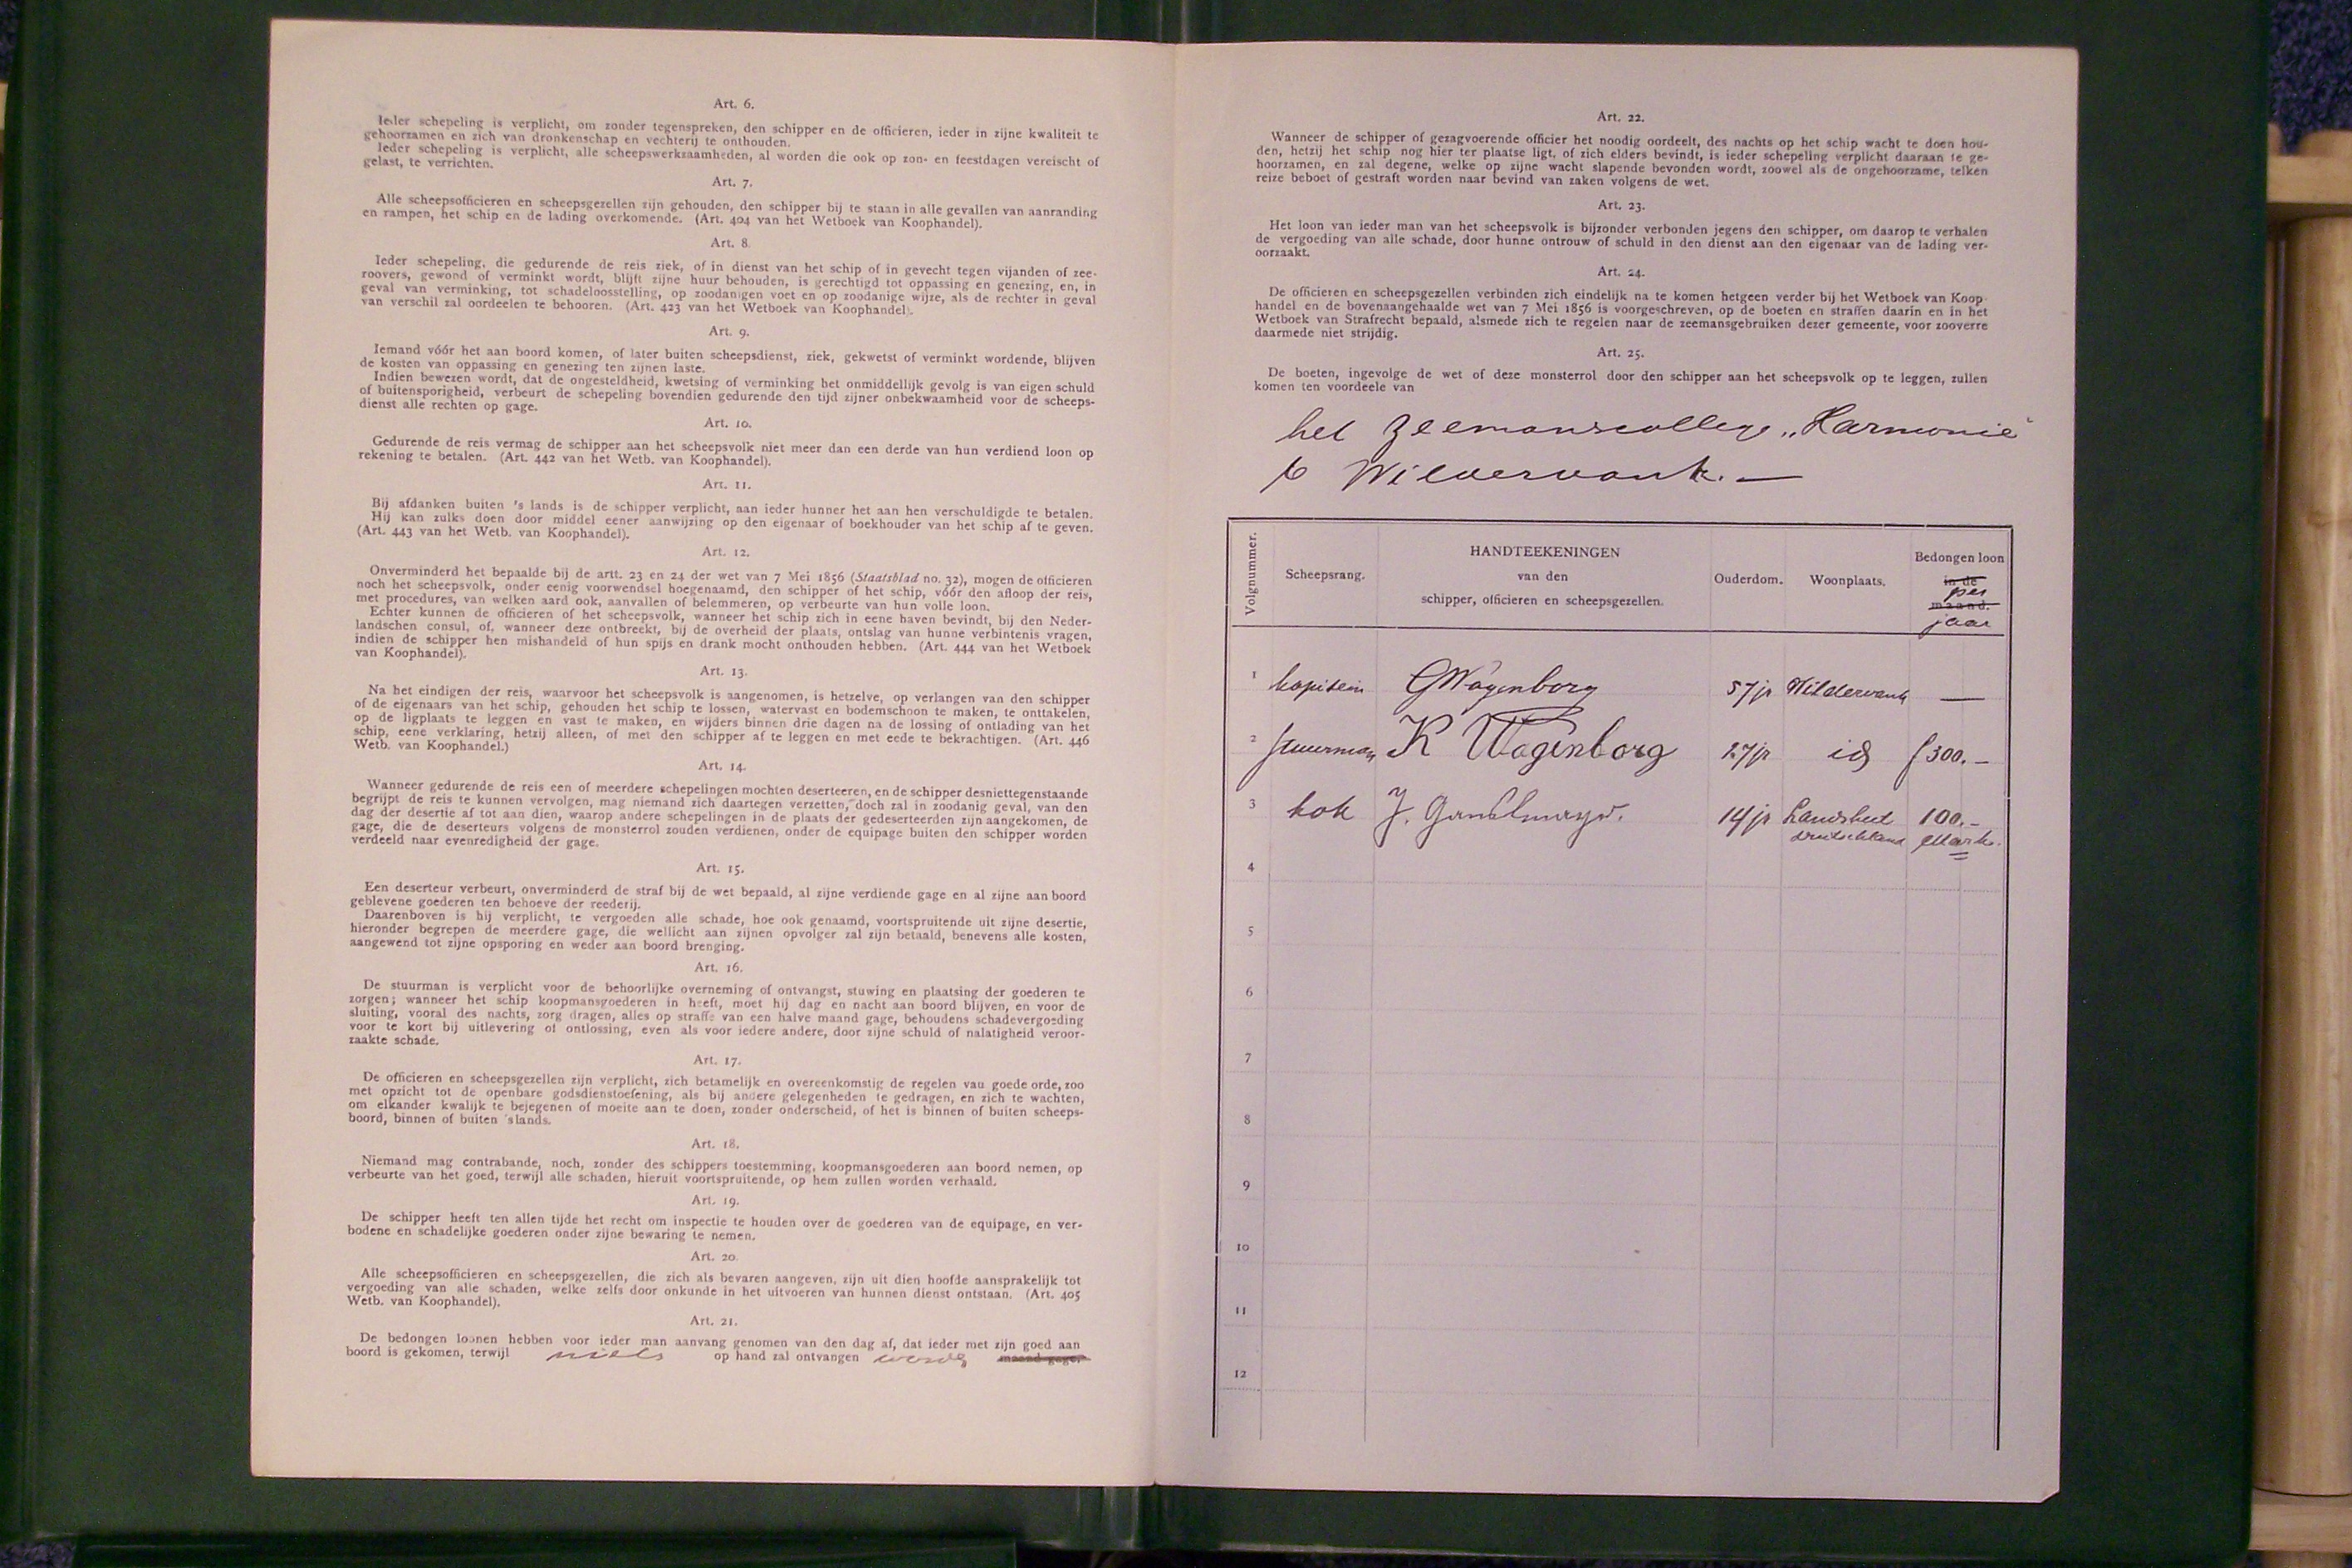 Art. 6.
Ieder schepeling is verplicht, om zonder tegenspreken, den schipper en de officieren, ieder in zijne kwaliteit te
gehoorzamen en zich van dronkenschap en vechterij te onthouden.
Ieder schepeling is verplicht, alle scheepswerkzaamheden, al worden die ook op zon- en feestdagen vereischt of
gelast, te verrichten.
Art. 7.
Alle scheepsofficieren en scheepsgezellen zijn gehouden, den schipper bij te staan in alle gevallen van aanranding
en rampen, het schip en de lading overkomende. (Art. 404 van het Wetboek van Koophandel).
Art. 8.
Ieder schepeling, die gedurende de reis ziek, of in dienst van het schip of in gevecht tegen vijanden of zee-
roovers, gewond of verminkt wordt, blijft zijne huur behouden, is gerechtigd tot oppassing en genezing, en, in
geval van verminking, tot schadeloosstelling, op zoodanigen voet en op zoodanige wijze, als de rechter in geval
van verschil zal oordeelen te behooren. (Art. 423 van het Wetboek van Koophandel).
Art. 9.
Iemand vóór het aan boord komen, of later buiten scheepsdienst, ziek, gekwetst of verminkt wordende, blijven
de kosten van oppassing en genezing ten zijnen laste.
Indien bewezen wordt, dat de ongesteldheid, kwetsing of verminking het onmiddellijk gevolg is van eigen schuld
of buitensporigheid, verbeurt de schepeling bovendien gedurende den tijd zijner onbekwaamheid voor de scheeps-
dienst alle rechten op gage.
Art. 10.
Gedurende de reis vermag de schipper aan het scheepsvolk niet meer dan een derde van hun verdiend loon op
rekening te betalen. (Art. 442 van het Wetb. van Koophandel).
Art. 11.
Bij afdanken buiten 's lands is de schipper verplicht, aan ieder hunner het aan hen verschuldigde te betalen.
Hij kan zulks doen door middel eener aanwijzing op den eigenaar of boekhouder van het schip af te geven.
(Art. 443 van het Wetb. van Koophandel).
Art. 12.
Onverminderd het bepaalde bij de artt. 23 en 24 der wet van 7 Mei 1856 (Staatsblad no. 32), mogen de officieren
noch het scheepsvolk, onder eenig voorwendsel hoegenaamd, den schipper of het schip, vóór den afloop der reis,
met procedures, van welken aard ook, aanvallen of belemmeren, op verbeurte van hun volle loon.
Echter kunnen de officieren of het scheepsvolk, wanneer het schip zich in eene haven bevindt, bij den Neder-
landschen consul, of, wanneer deze ontbreekt, bij de overheid der plaats, ontslag van hunne verbintenis vragen,
indien de schipper hen mishandeld of hun spijs en drank mocht onthouden hebben. (Art. 444 van het Wetboek
van Koophandel).
Art. 13.
Na het eindigen der reis, waarvoor het scheepsvolk is aangenomen, is hetzelve, op verlangen van den schipper
of de eigenaars van het schip, gehouden het schip te lossen, watervast en bodemschoon te maken, te onttakelen,
op de ligplaats te leggen en vast te maken, en wijders binnen drie dagen na de lossing of ontlading van het
schip, eene verklaring, hetzij alleen, of met den schipper af te leggen en met eede te bekrachtigen. (Art. 446
Wetb. van Koophandel.)
Art. 14.
Wanneer gedurende de reis een of meerdere schepelingen mochten deserteeren, en de schipper desniettegenstaande
begrijpt de reis te kunnen vervolgen, mag niemand zich daartegen verzetten, doch zal in zoodanig geval, van den
dag der desertie af tot aan dien, waarop andere schepelingen in de plaats der gedeserteerden zijn aangekomen, de
gage, die de deserteurs volgens de monsterrol zouden verdienen, onder de equipage buiten den schipper worden
verdeeld naar evenredigheid der gage.
Art. 15.
Een deserteur verbeurt, onverminderd de straf bij de wet bepaald, al zijne verdiende gage en al zijne aan boord
geblevene goederen ten behoeve der reederij.
Daarenboven is hij verplicht, te vergoeden alle schade, hoe ook genaamd, voortspruitende uit zijne desertie,
hieronder begrepen de meerdere gage, die wellicht aan zijnen opvolger zal zijn betaald, benevens alle kosten,
aangewend tot zijne opsporing en weder aan boord brenging.
Art. 16.
De stuurman is verplicht voor de behoorlijke overneming of ontvangst, stuwing en plaatsing der goederen te
zorgen; wanneer het schip koopmansgoederen in heeft, moet hij dag en nacht aan boord blijven, en voor de
sluiting, vooral des nachts, zorg dragen, alles op straffe van een halve maand gage, behoudens schadevergoeding
voor te kort bij uitlevering of ontlossing, even als voor iedere andere, door zijne schuld of nalatigheid veroor-
zaakte schade.
Art. 17.
De officieren en scheepsgezellen zijn verplicht, zich betamelijk en overeenkomstig de regelen van goede orde, zoo
met opzicht tot de openbare godsdienstoefening, als bij andere gelegenheden te gedragen, en zich te wachten,
om elkander kwalijk te bejegenen of moeite aan te doen, zonder onderscheid, of het is binnen of buiten scheeps-
boord, binnen of buiten 'slands.
Art. 18.
Niemand mag contrabande, noch, zonder des schippers toestemming, koopmansgoederen aan boord nemen, op
verbeurte van het goed, terwijl alle schaden, hieruit voortspruitende, op hem zullen worden verhaald.
Art. 19.
De schipper heeft ten allen tijde het recht om inspectie te houden over de goederen van de equipage, en ver-
bodene en schadelijke goederen onder zijne bewaring te nemen.
Art. 20.
Alle scheepsofficieren en scheepsgezellen, die zich als bevaren aangeven, zijn uit dien hoofde aansprakelijk tot
vergoeding van alle schaden, welke zelfs door onkunde in het uitvoeren van hunnen dienst ontstaan. (Art. 405
Wetb. van Koophandel).
Art. 21.
De bedongen loonen hebben voor ieder man aanvang genomen van den dag af, dat ieder met zijn goed aan
boord is gekomen, terwijl niets op hand zal ontvangen maand gage.
Art. 22.
Wanneer de schipper of gezagvoerende officier het noodig oordeelt, des nachts op het schip wacht te doen hou-
den, hetzij het schip nog hier ter plaatse ligt, of zich elders bevindt, is ieder schepeling verplicht daaraan te ge-
hoorzamen, en zal degene, welke op zijne wacht slapende bevonden wordt, zoowel als de ongehoorzame, telken
reize beboet of gestraft worden naar bevind van zaken volgens de wet.
Art. 23.
Het loon van ieder man van het scheepsvolk is bijzonder verbonden jegens den schipper, om daarop te verhalen
de vergoeding van alle schade, door hunne ontrouw of schuld in den dienst aan den eigenaar van de lading ver-
oorzaakt.
Art. 24.
De officieren en scheepsgezellen verbinden zich eindelijk na te komen hetgeen verder bij het Wetboek van Koop-
handel en de bovenaangehaalde wet van 7 Mei 1856 is voorgeschreven, op de boeten en straffen daarin en in het
Wetboek van Strafrecht bepaald, alsmede zich te regelen naar de zeemansgebruiken dezer gemeente, voor zooverre
daarmede niet strijdig.
Art. 25.
De boeten, ingevolge de wet of deze monsterrol door den schipper aan het scheepsvolk op te leggen, zullen
komen ten voordeele van
het Zeemanscollege „Harmonie"
te Wildervank. —
Volgnummer.
Scheepsrang.
HANDTEEKENINGEN
van den
schipper, officieren en scheepsgezellen.
Ouderdom.
Woonplaats.
Bedongen loon
in de
per
maand.
jaar
1 kapitein GWagenborg 57 jr Wildervank —
2 stuurman K Wagenborg 27 jr id f 300.-
3 kok J. 14 jr Landshut 100.-
Deutschland Mark.
4
5
6
7
8
9
10
11
12